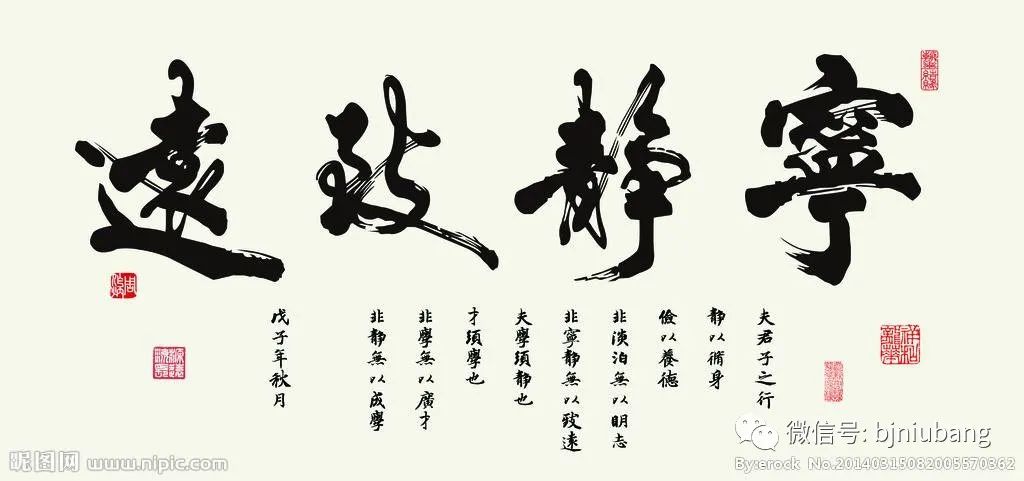 寧靜致遠
夫君子之行
靜以脩身
儉以養德
非淡泊無以明志
非寧靜無以致遠
夫學須靜也
才須學也
非學無以廣才
非靜無以成學
戊子年秋月
微信号: bjniubang
昵图网 www.nipic.com
By:erock No.20140315082005570362